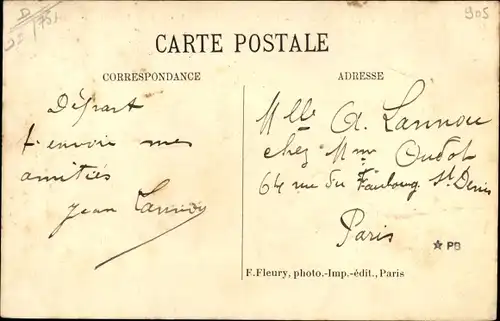 905
CARTE POSTALE
CORRESPONDANCE
Départ
t'envoie mes
amitiés
Jean Lannou
ADRESSE
Mlle A. Lannou
chez Mme Oudot
64 rue du Faubourg St Denis
Paris
PB
F. Fleury, photo.-Imp.-édit., Paris